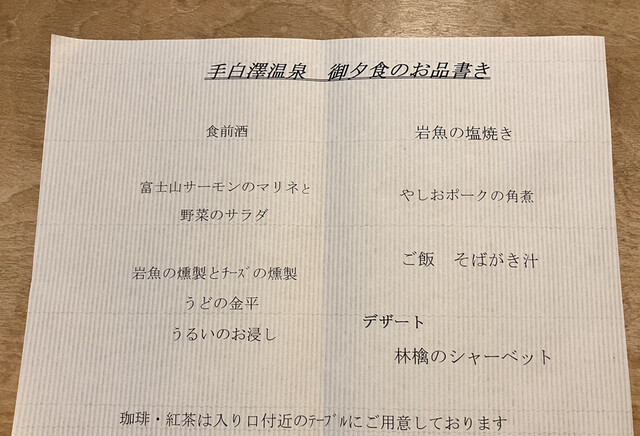 手白澤温泉　御夕食のお品書き
食前酒
富士山サーモンのマリネと
野菜のサラダ
岩魚の燻製とﾁｰｽﾞの燻製
うどの金平
うるいのお浸し
岩魚の塩焼き
やしおポークの角煮
ご飯　そばがき汁
デザート
林檎のシャーベット
珈琲・紅茶は入り口付近のﾃｰﾌﾞﾙにご用意しております